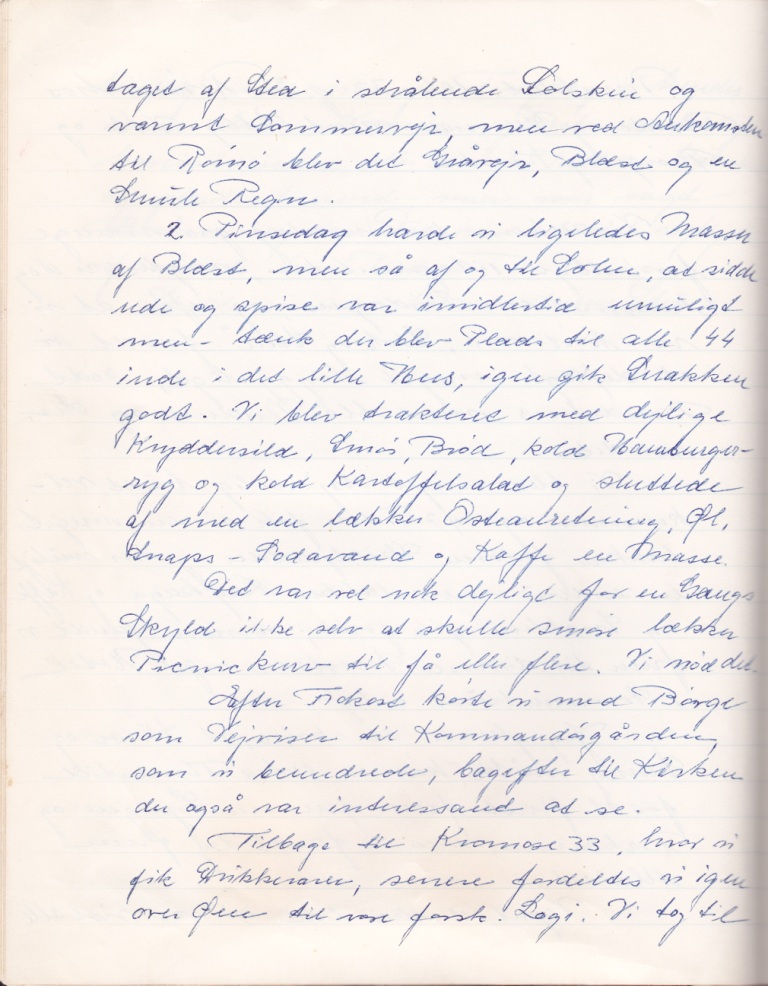 taget af Sted i strålende Solskin og
varmt Sommervejr, men ved Ankomsten
til Rømø blev det Gråvejr, Blæst og en
Smule Regn.
2. Pinsedag havde vi ligeledes Masser
af Blæst, men så af og til Solen, at sidde
ude og spise var imidlertid umuligt
men - tænk der blev Plads til alle 44
inde i det lille Hus, igen gik Snakken
godt. Vi blev trakteret med dejlige
Kryddersild, Smør, Brød, kold Hamburger-
ryg og kold Kartoffelsalad og sluttede
af med en lækker Osteanretning, Øl,
Snaps - Sodavand og Kaffe en Masse.
Det var vel nok dejligt for en Gangs
Skyld ikke selv at skulle smøre lækker
Picnickurv til få eller flere. Vi nød det.
Efter Frokost kørte vi med Børge
som Vejviser til Kommandørgården,
som vi beundrede, bagefter til Kirken
der også var interessand at se.
Tilbage til Kromose 33, hvor vi
fik Drikkevarer, senere fordeltes vi igen
over Øen til vore forsk. Logi. Vi tog til